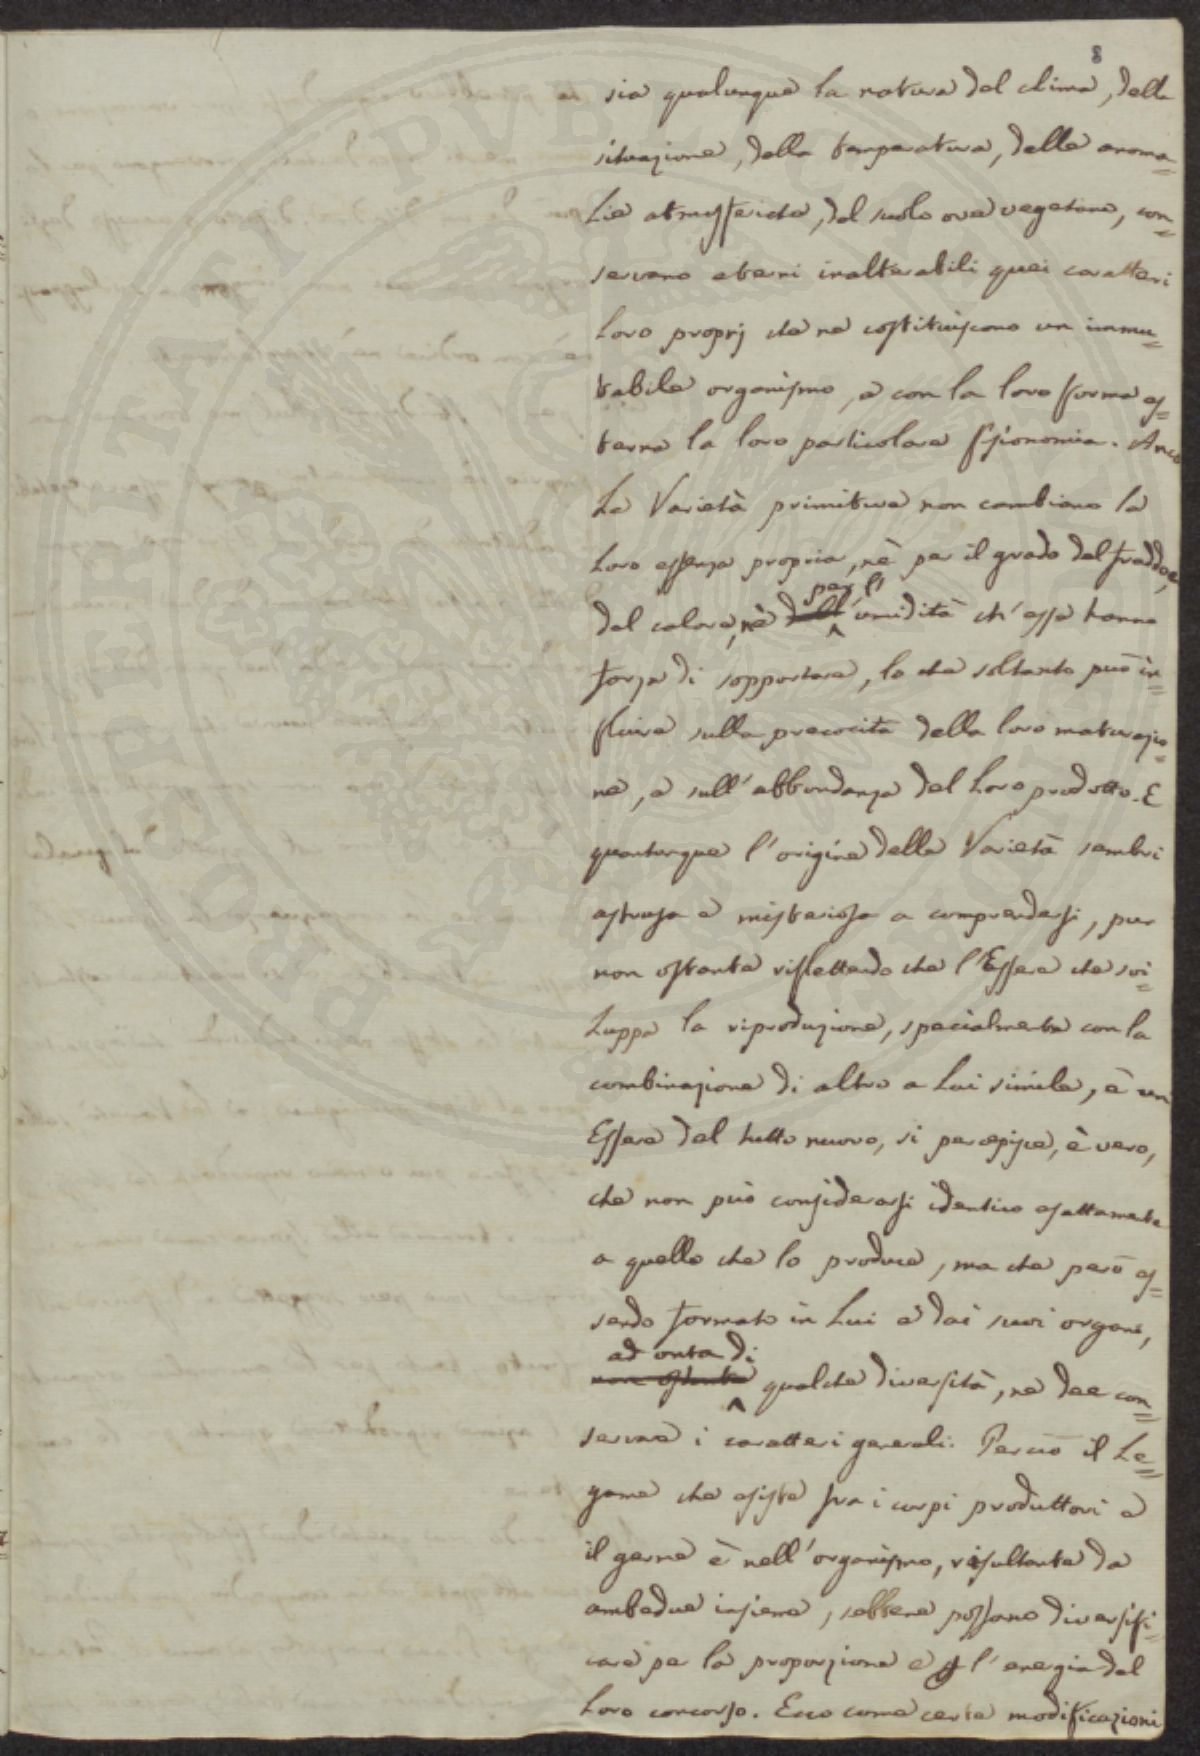 8
sia qualunque la natura del clima, della
situazione, della temperatura, delle anoma=
lie atmosferiche, del suolo ove vegetano, con=
servano eterni inalterabili quei caratteri
loro proprj che ne costituiscono un immu=
tabile organismo, e con la loro forma es=
terna la loro particolare fisionomia. Anco
le Varietà primitive non cambiano la
loro essenza propria, nè per il grado del freddo, e
per l'
del calore, nè dell' umidità ch'esse hanno
forza di sopportare, lo che soltanto può in=
fluire sulla precocità della loro maturazio=
ne, e sull'abbondanza del loro prodotto. E
quantunque l'origine delle Varietà sembri
astrusa e misteriosa a comprendersi, pur
non ostante riflettendo che l'Essere che svi=
luppa la riproduzione, specialmente con la
combinazione di altro a Lui simile, è un
Essere del tutto nuovo, si percepisce, è vero,
che non può considerarsi identico esattamente
a quello che lo produce, ma che però es=
sendo formato in Lui e dai suoi organi,
ad onta di
non ostante qualche diversità, ne dee con=
servare i caratteri generali. Perciò il le=
game che esiste fra i corpi produttori e
il germe è nell'organismo, risultante da
ambedue insieme, sebbene possano diversifi=
care per la proporzione e l'energia del
loro concorso. Ecco come certe modificazioni